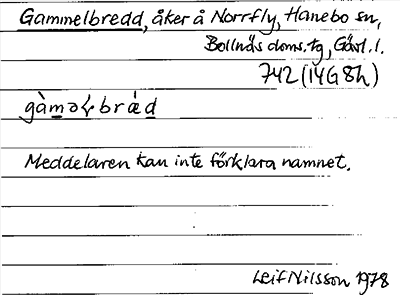 Gammelbredd, åker å Norrfly, Hanebo sn,
Bollnäs doms.tg, Gävl. l.
742 (14G 8h)
Meddelaren kan inte förklara namnet.
Leif Nilsson 1978